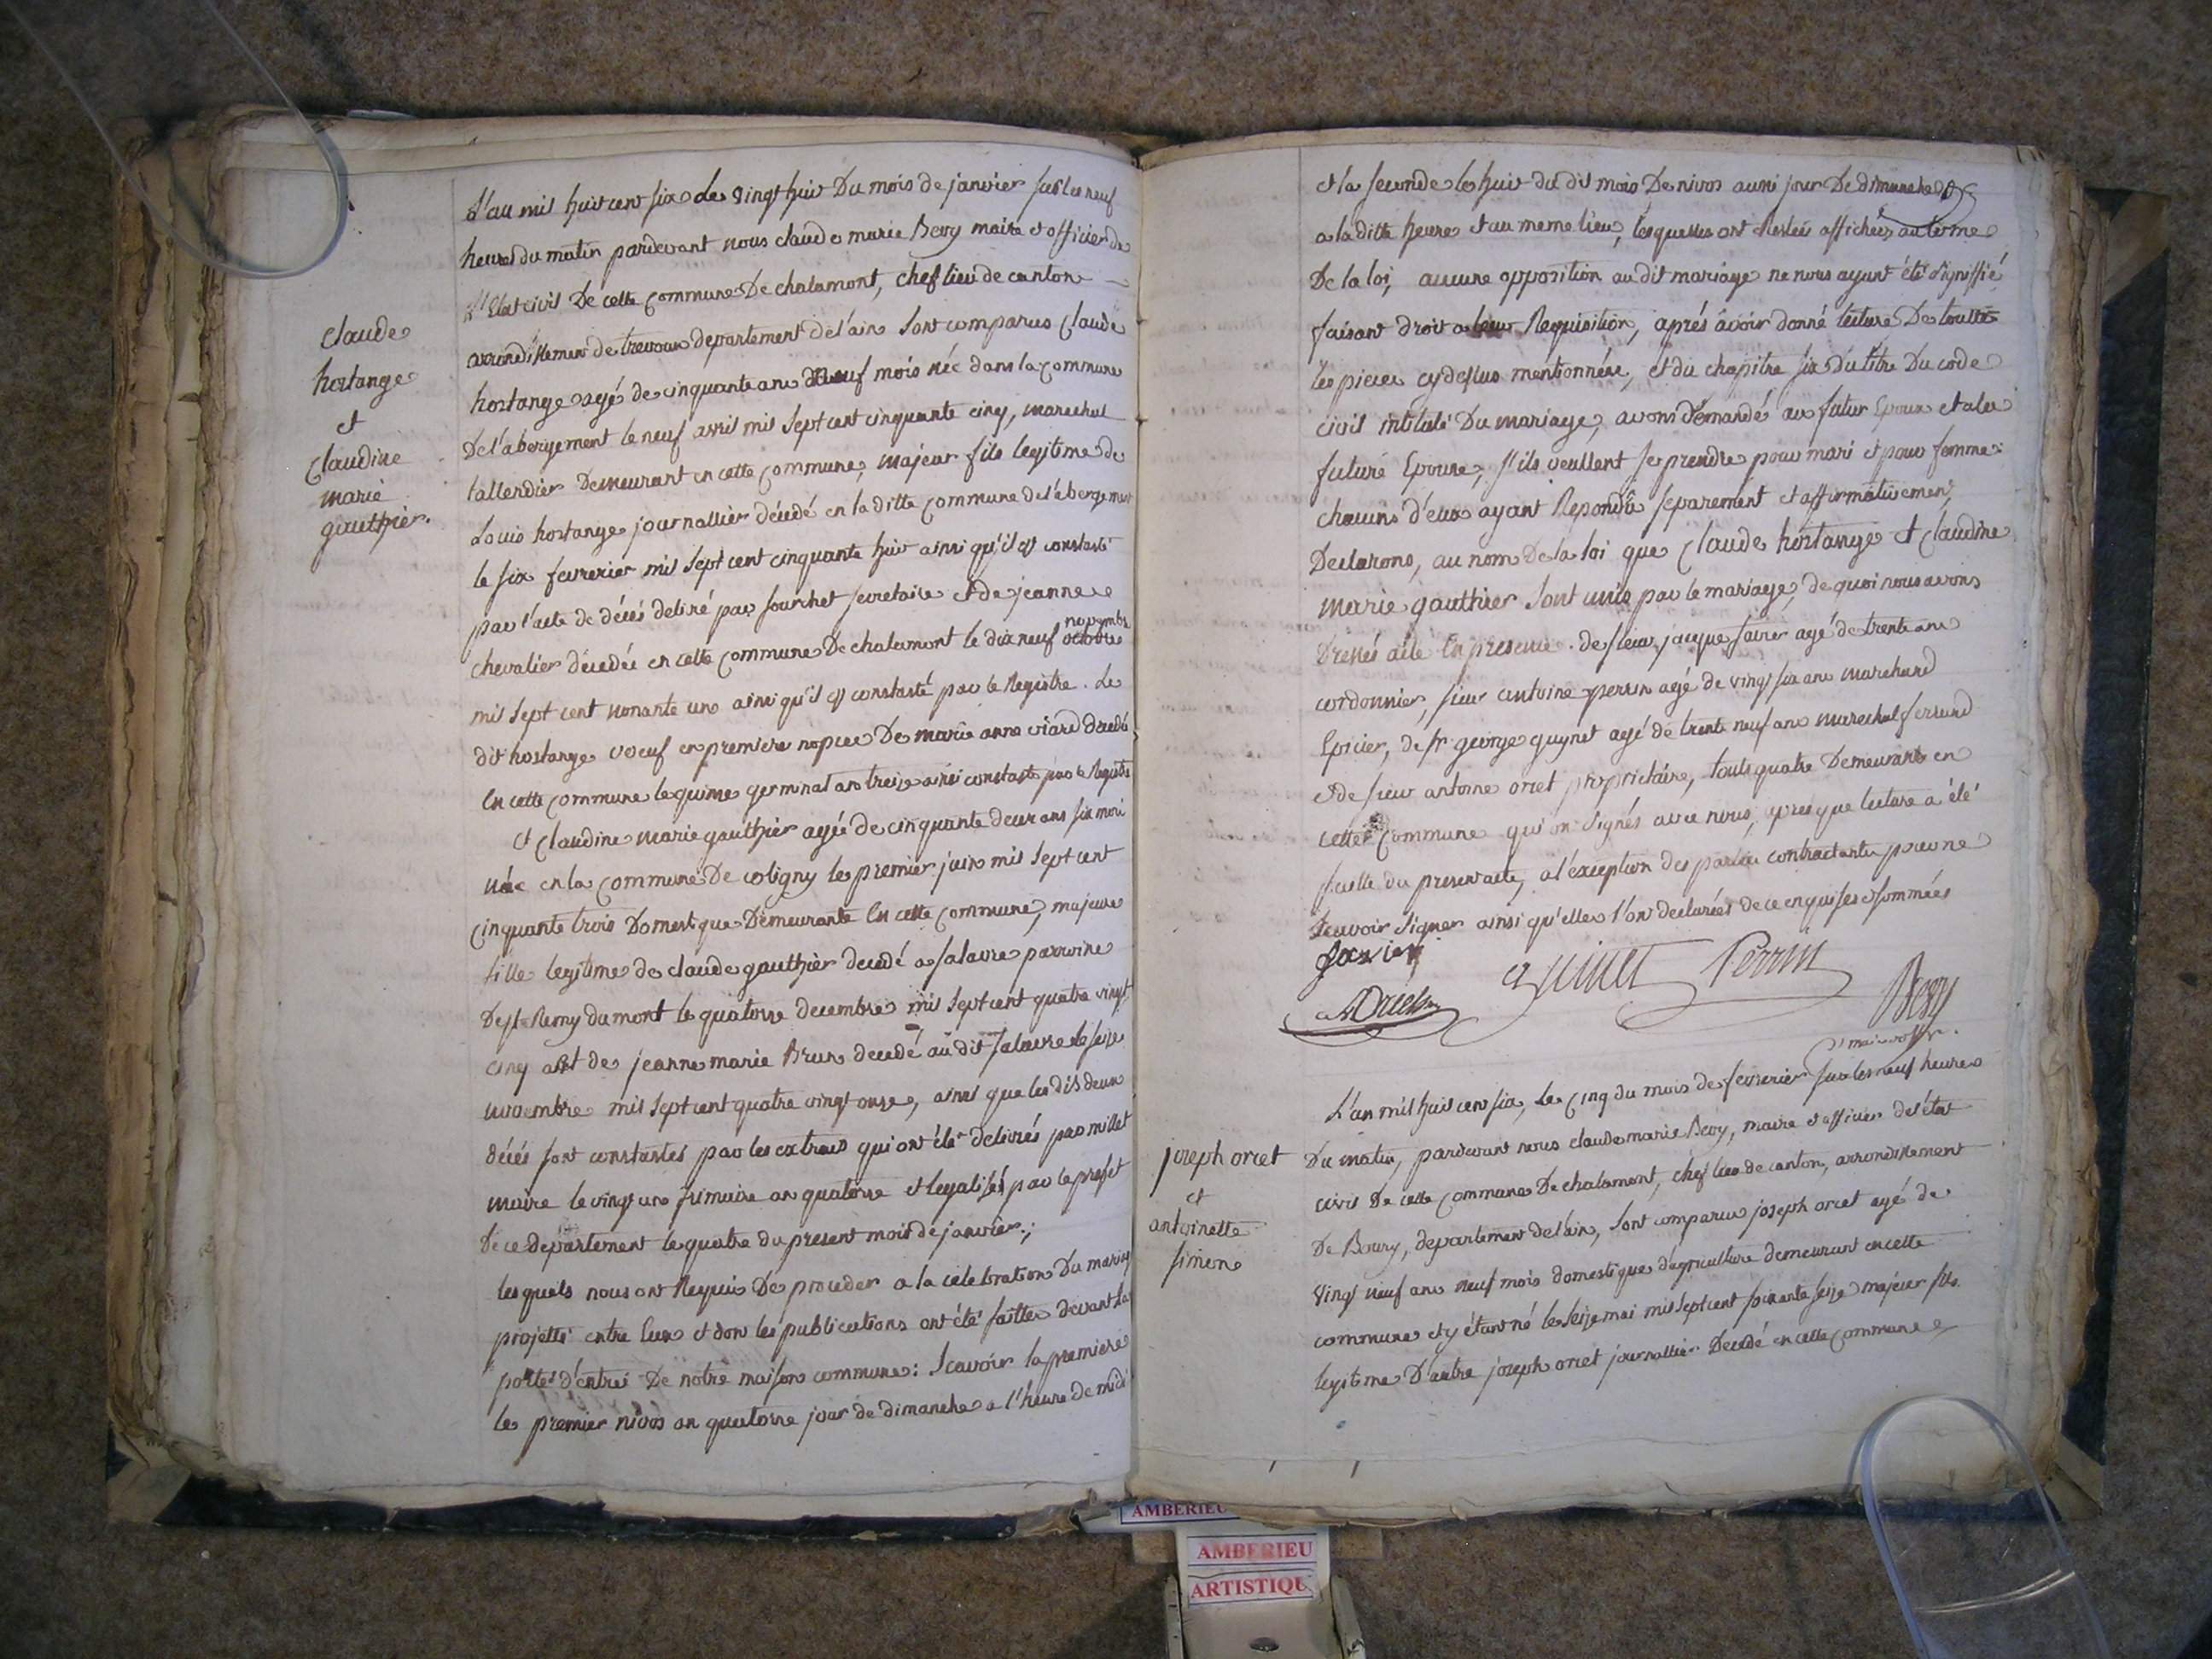 claude
hostange
et
claudine
marie
gauthier.
L'an mil huit cent six le vingt huit Du mois de janvier sur les neuf
heures du matin pardevant nous claude marie Bevy maire et officier de
L'Etat civil De cette commune De chalamont, chef lieu de canton
arrondissement de trevoux departement de l'ain sont comparus Claude
hostange agé de cinquante ans neuf mois née dans la commune
De l'abergement le neuf avril mil sept cent cinquante cinq, marechal
tallendier Demeurant en cette commune, majeur fils legitime de
Louis hostange journallier décédé en la ditte commune de l'abergement
le six fevrerier mil sept cent cinquante huit ainsi qu'il est constasté
par l'acte de décés deliré par sourchet secretaire et de jeanne
chevalier décedée en cette commune De chalamont le dix neuf octobre novembre
mil sept cent nonante un ainsi qu'il est constasté par le Registre. Le
dit hostange voeuf en premiere nopces De marie anne viard décedé
En cette commune le quinse germinal an treize ainsi constasté par le Registre
et Claudine marie gauthier agée de cinquante deux ans six mois
née en la commune De coligny le premier juin mil sept cent
cinquante trois Domestique Demeurante En cette commune, majeure
fille legitime de claude gauthier decedé a salavre parroine
De st Remy du mont le quatorse decembre mil sept cent quatre vingt
cinq et de jeanne marie Brun decedé au dit salavre le seise
novembre mil sept cent quatre vingt onse, ainsi que les dis deux
décés sont constastés par les extraits qui ont été delivrés par millet
maire le vingt un frimaire an quatorse et legalisés par le prefet
de ce departement le quatre du present mois de janvier;
lesquels nous ont Requis De proceder a la celebration Du mariage
projetté entre Eux et dont les publications ont été faittes devant la
porte d'entrée De nôtre maison commune: Scavoir la premiere
le premier nivos an quatorse jour de dimanche a l'heure de midi
et la seconde le huit du dit mois De nivos aussi jour De dimanche
a la ditte heure et au meme lieu, lesquelles ont restées affichées au terme
De la loi, aucune opposition au dit mariage ne nous ayant été signiffié,
faisant droit a leur Requisition, aprés avoir donné lecture De toutte
les pieces cydessus mentionnées, et du chapitre six du titre Du code
civil intitulé Du mariage, avons démandé au futur Epoux et a la
futuré Epouse, s'ils veullent se prendre pour mari et pour femme:
chacuns d'eux ayant Repondû separement et affirmativement,
Declarons, au nom De la loi que Claude hostange et Claudine
marie gauthier sont unis par le mariage, de quoi nous avons
Dressés acte En presence de sieur jacque favier agé de trente ans
cordonnier, sieur antoine perrin agé de vingt six ans marchand
Epicier, de sr george guynet agé de trente neuf ans marechal ferrand
et de sieur antoine orcet proprietaire, touts quatre Demeurants en
cette commune qui on signés avec nous, apres que lecture a été
faitte du present acte, a l'exception des parties contractantes pour ne
scavoir signer ainsi qu'elles l'on declarées de ce enquises et sommées
favier
guinet
Perrin
A Orcet
Bevy
maire
joseph orcet
et
antoinette
simene
L'an mil huit cent six, le cinq du mois de fevrerier sur les neuf heures
Du matin, pardevant nous claude marie Bevy, maire et officier de l'état
civil De cette commune De chalamont, chef lieu de canton, arrondissement
De Bourg, departement de l'ain, sont comparus joseph orcet agé de
vingt neuf ans neuf mois domestique d'agriculture demeurant en cette
commune et y étant né le seize mai mil sept cent soixante seize majeur fils
legitime D'autre joseph orcet journallier Decedé en cette commune
AMBERIEU
AMBERIEU
ARTISTIQU